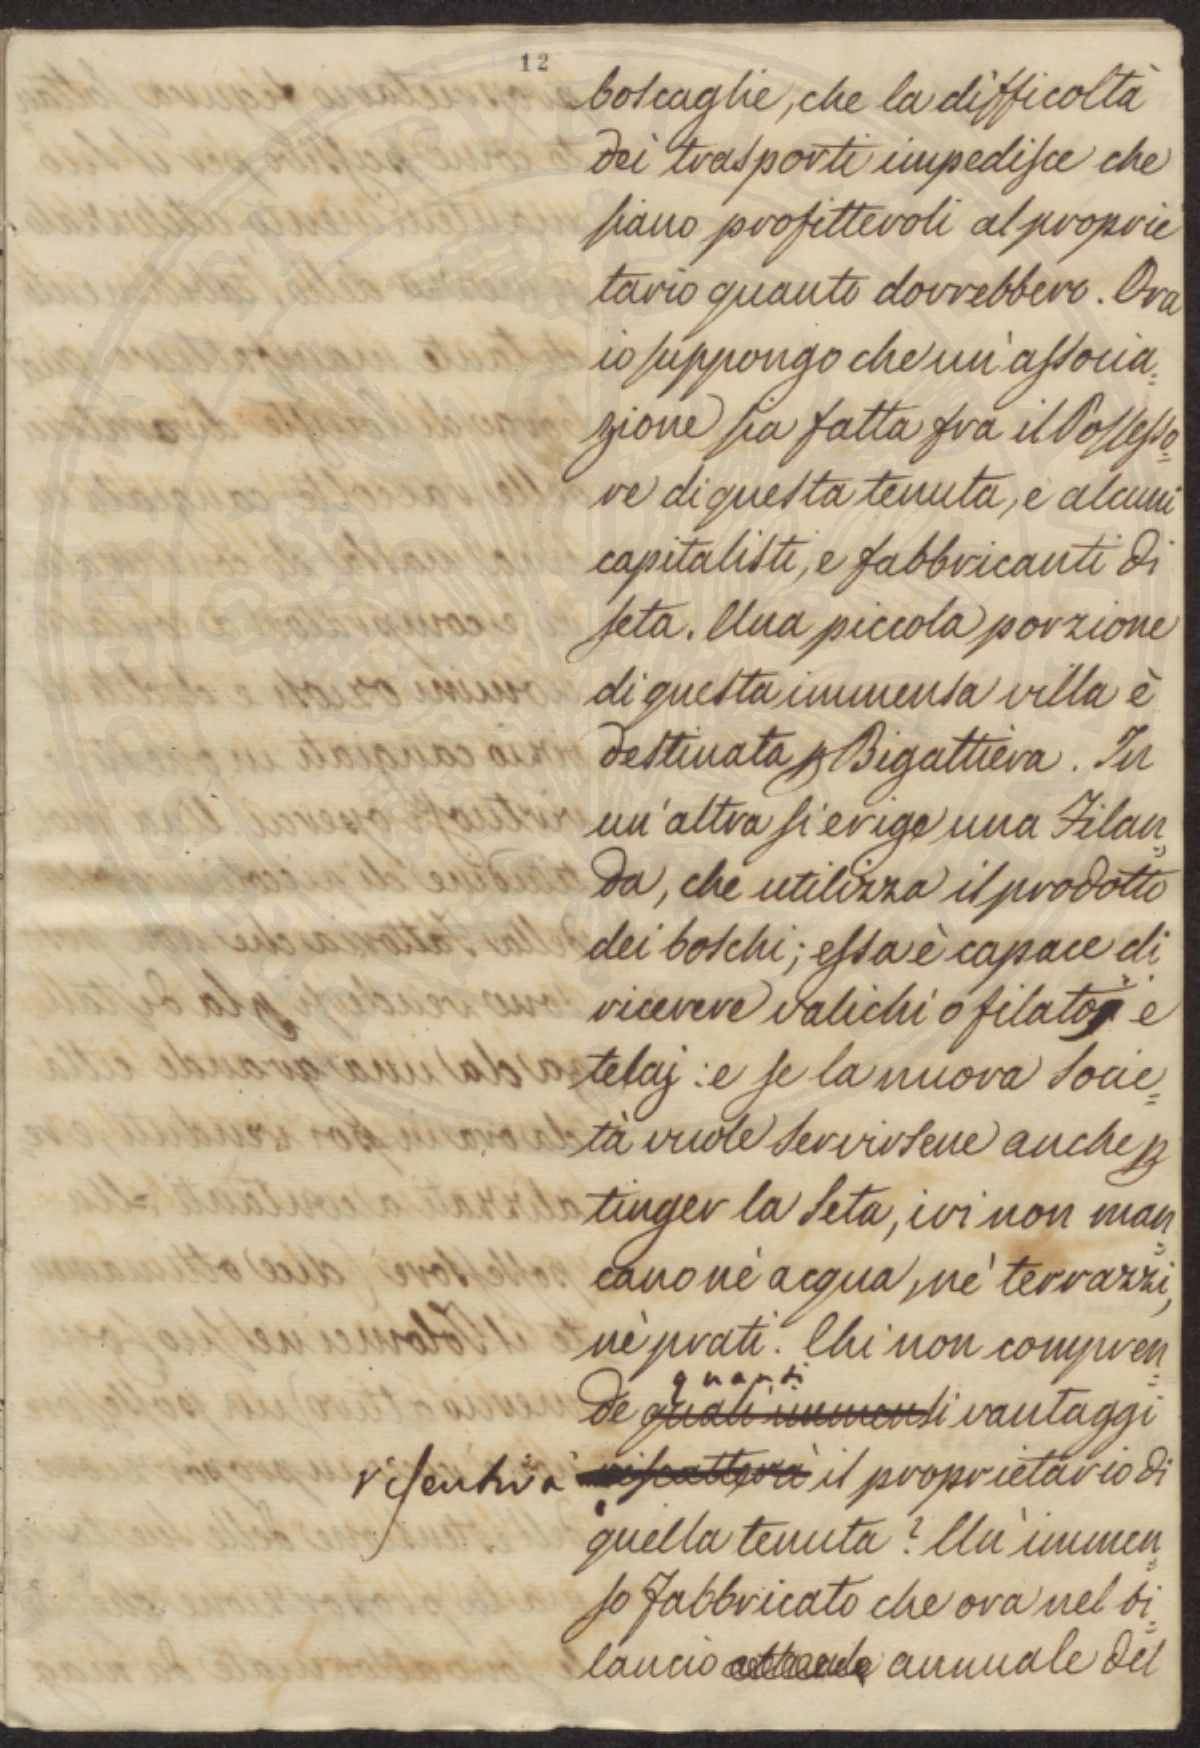 12
boscaglie, che la difficoltà
dei trasporti impedisce che
siano profittevoli al proprie
tario quanto dovrebbero. Ora
io suppongo che un'associa=
zione sia fatta fra il Possesso=
re di questa tenuta, e alcuni
capitalisti, e fabbricanti di
seta. Una piccola porzione
di questa immensa villa è
destinata p Bigattiera. In
un'altra si erige una Filan=
da, che utilizza il prodotto
dei boschi; essa è capace di
ricevere valichi o filatoj e
telaj: e se la nuova Socie=
tà vuole servirsene anche p
tinger la Seta, ivi non man=
cano nè acqua, nè terrazzi,
nè prati. Chi non compren=
quanti
de quali immensi vantaggi
risentirà riscatterà il proprietario di
quella tenuta? Un'immen=
so fabbricato che ora nel bi=
lancio annuale del